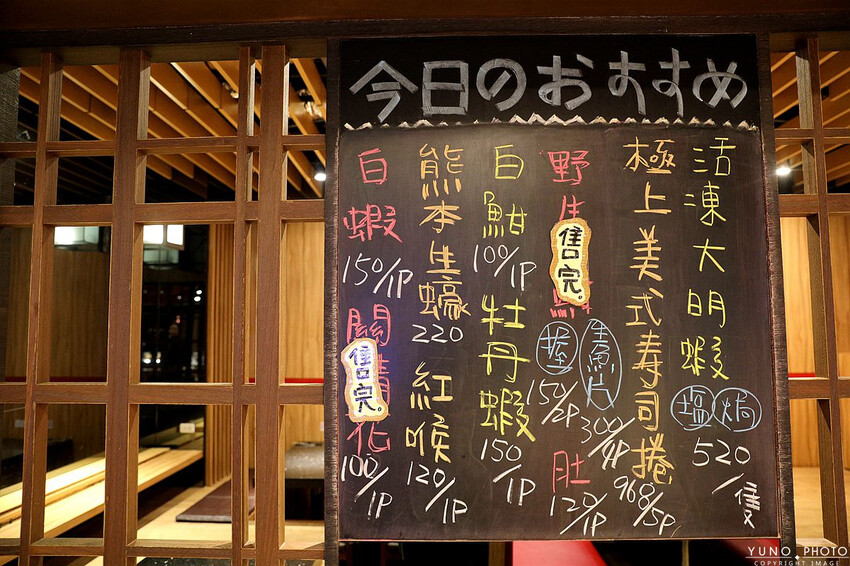 今日のおすすめ
活凍大明蝦
塩 焗
520/隻
極上美式寿司捲
968/5P
野生
售完。
握
150/2P
生魚片
300/4P
肚
120/1P
白魽
100/1P
牡丹蝦
150/1P
熊本生蠔
220
紅喉
120/1P
白蝦
150/1P
關
售完。
花
100/1P
YUNO PHOTO
COPYRIGHT IMAGE